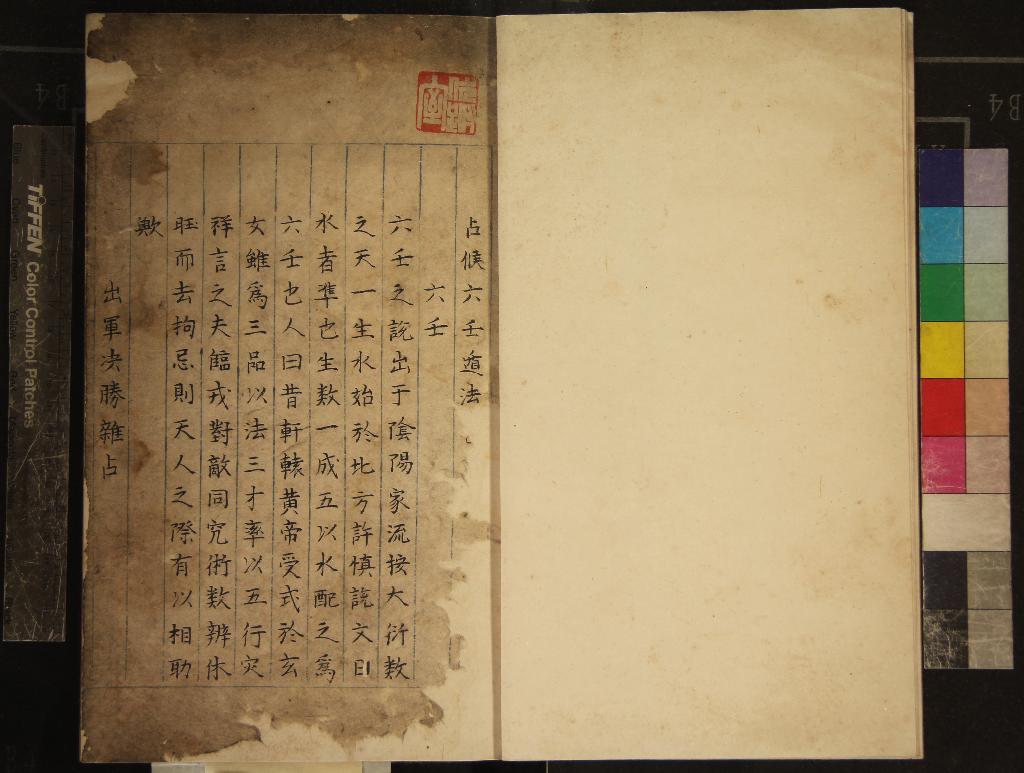 占候六壬遁法
六壬
六壬之說出于陰陽家流按大衍數
之天一生水始於北方許慎說文曰
水者準也生数一成五以水配之爲
六壬也人曰昔軒轅黄帝受式於玄
女雖爲三品以法三才率以五行灾
祥言之夫臨戎對敵同究術数辨休
旺而去拘忌則天人之際有以相助
歟
出軍决勝雜占
TIFFEN Color Control Patches
B4
B4